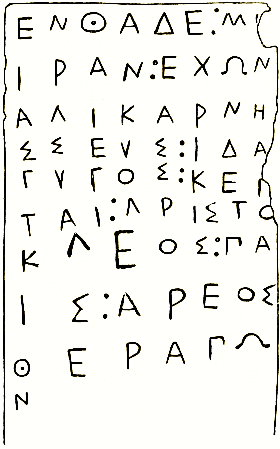 ΕΝΘΑΔΕ:Μ
ΙΡΑΝ:ΕΧΩΝ
ΑΛΙΚΑΡΝΗ
ΣΣΕΥΣ:ΙΔΑ
ΓΥΓΟΣ:ΚΕΙ
ΤΑΙ:ΑΡΙΣΤΟ
ΚΛΕΟΣ:ΠΑ
ΙΣ:ΑΡΕΟΣ
ΘΕΡΑΠΩ
Ν